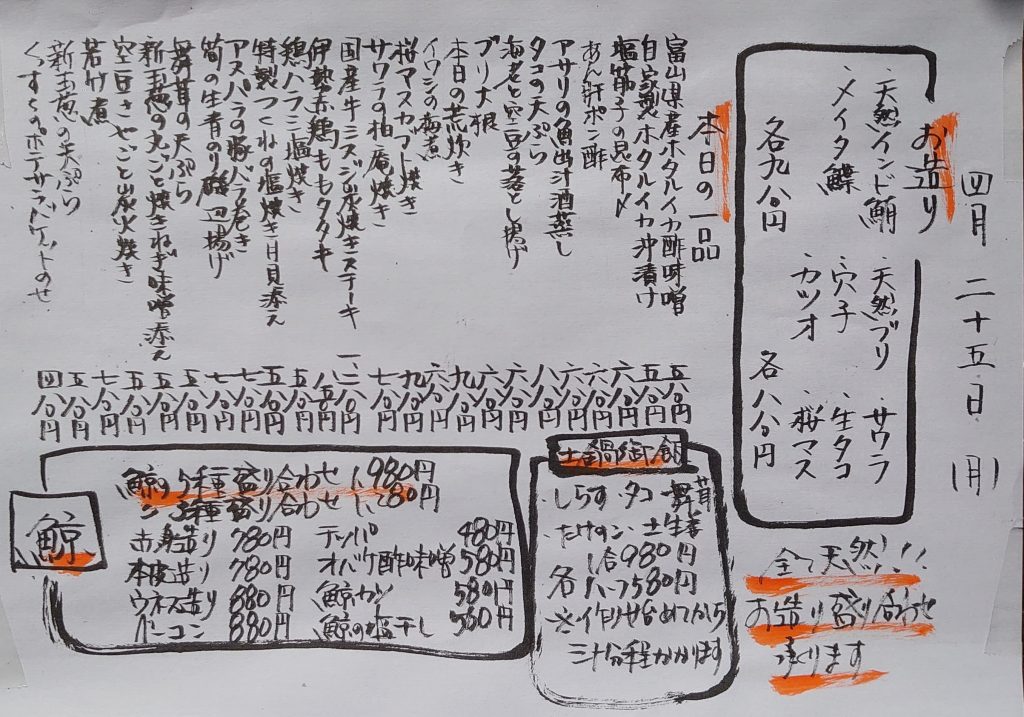 四月二十五日(月)
お造り
・天然インド鮪 ・天然ブリ ・サワラ
・メイタ鰈 ・穴子 ・生タコ
・カツオ ・桜マス
各九八〇円 各八八〇円
本日の一品
富山県産ホタルイカ酢味噌 五八〇円
自家製ホタルイカ沖漬け 五八〇円
塩筋子の昆布〆 六八〇円
あん肝ポン酢 六八〇円
アサリの魚出汁酒蒸し 八八〇円
タコの天ぷら 六八〇円
海老と空豆の落とし揚げ 六八〇円
ブリ大根 九八〇円
本日の荒炊き
イワシの梅煮 六八〇円
桜マスカブト焼き 九八〇円
サワラの柚庵焼き 七八〇円
国産牛ミスジ炭焼きステーキ
伊勢赤鶏ももタタキ 八五〇円
鶏ハラミ塩焼き 五八〇円
特製つくねの塩焼き 月見添え 五八〇円
アスパラの豚バラ巻き 七八〇円
筍の生青のり磯辺揚げ 七八〇円
舞茸の天ぷら 五八〇円
新玉葱の丸ごと焼きねぎ味噌添え 五八〇円
空豆さやごと炭火焼き 五八〇円
若竹煮 七八〇円
新玉葱の天ぷら 五八〇円
くずきりのポテサラ 四八〇円
鯨
鯨の5種盛り合わせ 1,980円
〃 3種盛り合わせ 1,280円
赤身造り 780円 テッパ 480円
本皮造り 780円 オバケ酢味噌 580円
ウネス造り 880円 鯨カツ 580円
ベーコン 880円 鯨の塩干し 550円
土鍋御飯
・しらす・タコ・舞茸
・たけのこ・土生姜
各 1合980円
ハーフ580円
※作り始めてから
三十分程かかります
全て天然!!
お造り盛り合わせ
承ります